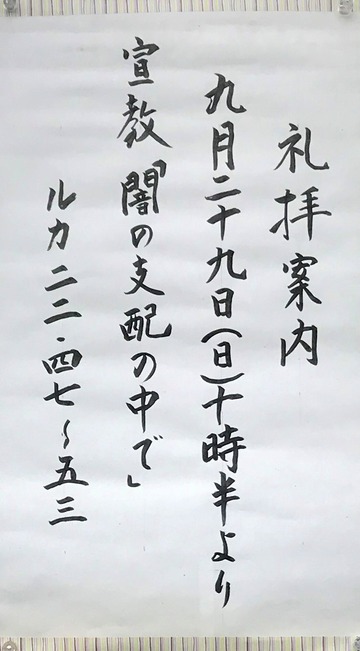 礼拝案内
九月二十九日(日)十時半より
宣教「闇の支配の中で」
ルカ二二・四七~五三